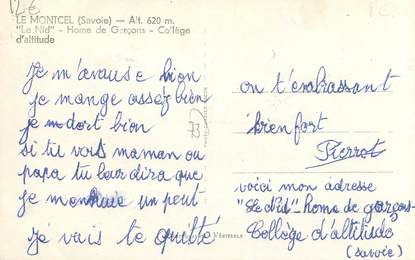 12€
LE MONTCEL (Savoie) — Alt. 620 m.
"Le Nid" - Home de Garçons - Collège
d'altitude
Je m'avause bion
je mange assez bien
je m dort bion
si tu vois maman ou
papa tu leur dira que
je m'enhuie un peut
Je vais te quitté
73
on t'enbrassant
bien fort
Pierrot
voici mon adresse
"Le d'id" - home de garçons-
Collège d'altitude
(savoie)
Véritable